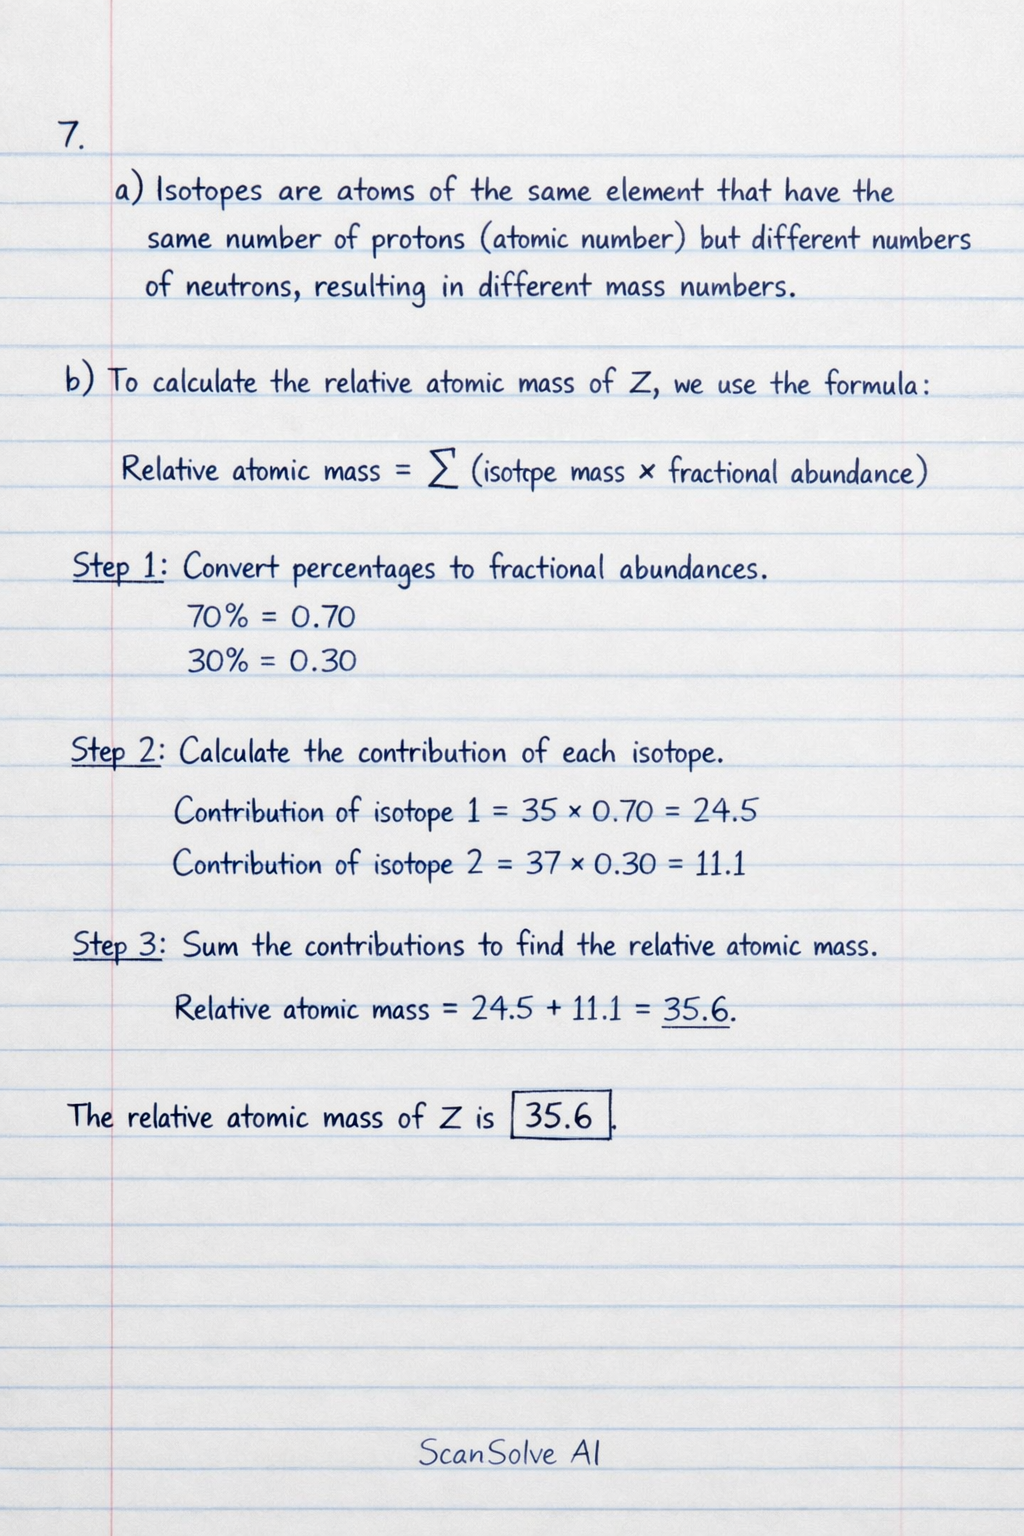 7.
a) Isotopes are atoms of the same element that have the
same number of protons (atomic number) but different numbers
of neutrons, resulting in different mass numbers.
b) To calculate the relative atomic mass of Z, we use the formula:
Relative atomic mass = ∑ (isotope mass × fractional abundance)
Step 1: Convert percentages to fractional abundances.
70% = 0.70
30% = 0.30
Step 2: Calculate the contribution of each isotope.
Contribution of isotope 1 = 35 × 0.70 = 24.5
Contribution of isotope 2 = 37 × 0.30 = 11.1
Step 3: Sum the contributions to find the relative atomic mass.
Relative atomic mass = 24.5 + 11.1 = 35.6.
The relative atomic mass of Z is 35.6.
ScanSolve AI